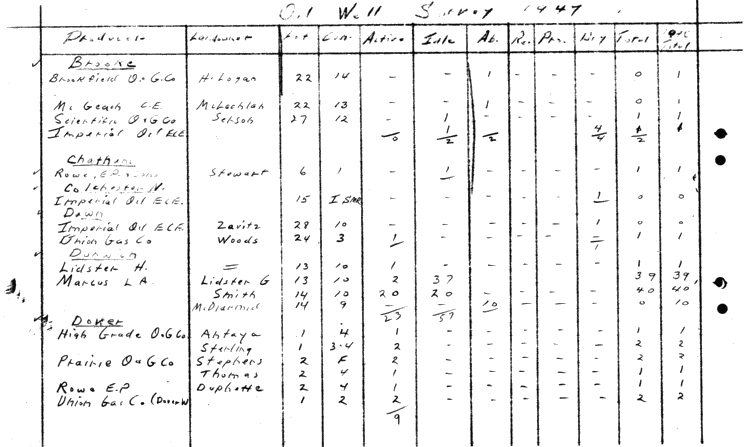 Oil Well Survey 1947
Producer Landowner Lot Con. Active Idle Ab. Re. Dry Total Total
Brooke
Brookfield O & G Co H. Logan 22 14 - - 1 - - - 0 1
Mc Geach C.E McLachlan 22 13 - - 1 - - - 0 1
Scientific O & G Co 27 12 - 1 - - - - 1 1
Imperial Oil E.L.E. 0 1/2 2 4/4 2
Chatham
Rowe, E.P. Stewart 6 1 - 1 - - - - 1 1
Colchester N.
Imperial Oil E.L.E. 15 I - - - - - 1 0 0
Dawn
Imperial Oil E.L.E. Zavitz 28 10 - - - - - 1 0 0
Union Gas Co Woods 24 3 1 - - - - - 1 1
1
Dunwich
Lidster H. = 13 10 1 - - - - - 1 1
Marcus L A. Lidster G 13 10 2 37 - - - - 39 39
Smith 14 10 20 20 - - - - 40 40
McDiarmid 14 9 - - 10 - - - 0 10
23 57
Dover
High Grade O & G Co. Ahtaya 1 4 1 - - - - - 1 1
Sterling 1 3-4 2 - - - - - 2 2
Prairie O & G Co Stephens 2 F 2 - - - - - 2 2
Thomas 2 4 1 - - - - - 1 1
Rowe E.P Duphette 2 4 1 - - - - - 1 1
Union Gas Co. (Dover W 1 2 2 - - - - - 2 2
9